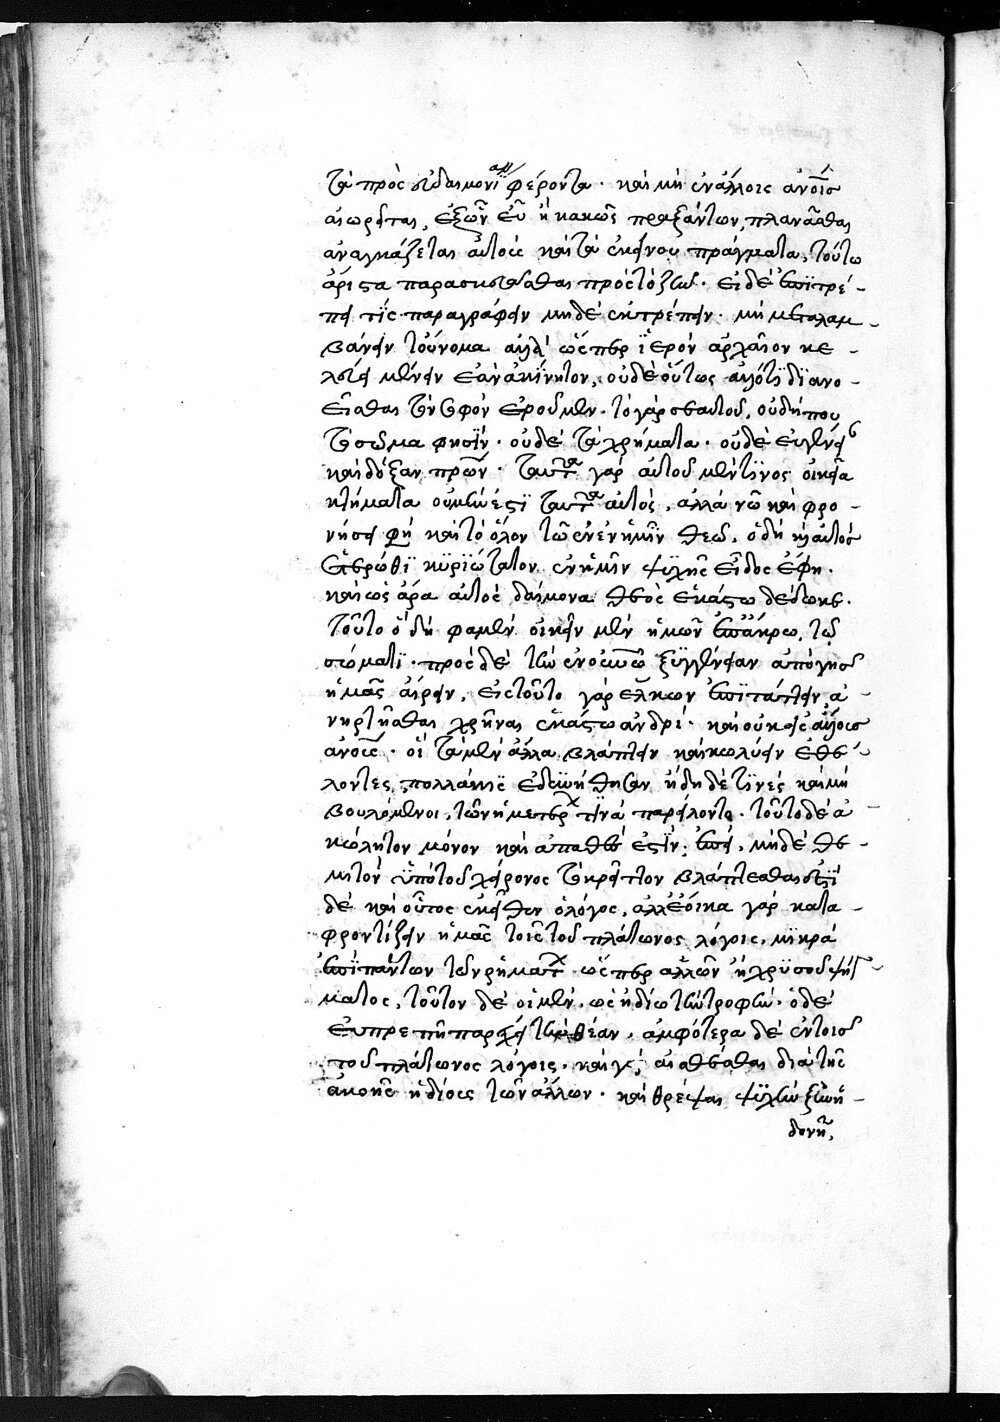 τὰ πρὸς εὐδαιμονίαν φέροντα. καὶ μὴ ἐν ἄλλοις ἀνοις
αἰωρεῖται, ἐξ ὧν εὖ ἢ κακῶς πραξάντων, πλανᾶσθαι
ἀναγκάζεται αὐτὸς καὶ τὰ ἐκείνου πράγματα, τούτω
ἄριστα παρασκευᾶσθαι πρὸς τὸ ζῶ. εἰ δὲ ἐπιτρέ-
πει τίς παραγράφειν μηδὲ ἐκτρέπειν. μὴ μεταλαμ-
βάνειν τοὔνομα ἀλλ' ὥσπερ ἱερὸν ἀρχαῖον κε-
λεύει μένειν ἐᾶν ἀκίνητον, οὐδὲ οὕτως ἄλλο τι διανο-
εῖσθαι τὸν σοφὸν ἐροῦμεν. τὸ γὰρ σεαυτοῦ, οὐ δή που
τὸ σῶμα φησίν. οὐδὲ τὰ χρήματα. οὐδὲ εὐγένει
καὶ δόξαν πρῶν. ταῦτα γὰρ αὐτοῦ μέν τινος οἰκεῖα
κτήματα οὐ μὴν ἐστὶ ταῦτα αὐτός, ἀλλὰ νῶ καὶ φρο-
νήσει φὴ καὶ τὸ ὅλον τῶ ἐν ἡμῖν θεῶ. ὃ δὴ καὶ αὐτὸς
ἑτέρωθι κυριώτατον ἐν ἡμῖν ψυχῆς εἶδος ἔφη.
καὶ ὡς ἄρα αὐτὸς δαίμονα θεὸς ἑκάστω δέδωκε.
τοῦτο ὃ δή φαμεν οἰκεῖν μὲν ἡμῶν ἐπ' ἄκρω, τῷ
σώματι. πρὸς δὲ τὴν ἐν οὐνῶ ξυγγένειαν ἀπὸ γῆς
ἡμᾶς αἴρειν, εἰς τοῦτο γὰρ ἕλκων ἐπιτάττει ἀ-
νηρτῆσθαι χρῆναι ἑκάστω ἀνδρί. καὶ οὐκ εἰς ἄλλοις
ἀνοις. οἱ τὰ μὲν ἄλλα βλάπτειν καὶ κωλύειν ἐθέ-
λοντες πολλάκις ἐδυνήθησαν ἤδη δέ τινες καὶ μὴ
βουλόμενοι, τῶν ἡμετέρων τινὰ παρείλοντο. τοῦτο δὲ ἀ-
κώλυτον μόνον καὶ ἀπαθές ἐστιν. ἐπεὶ, μηδὲ θε-
μιτὸν ὑπὸ τοῦ χείρονος τὸ κρεῖττον βλάπτεσθαι ἔστι
δὲ καὶ οὗτος ἐκεῖθεν ὁ λόγος, ἀλλ' ἔοικα γὰρ κατα-
φροντίζειν ἡμᾶς τοῖς τοῦ πλάτωνος λόγοις. μικρὰ
ἐπὶ πάντων τῶν ῥημάτων ὥσπερ ἄλλων ἢ χρυσοῦ ψήγ-
ματος, τοῦτον δὲ οἱ μὲν. ὡς ἡδίω τὴν τροφὴν. ὁ δὲ
εὐπρεπῆ παρέχει τὴν θέαν. ἀμφότερα δὲ ἐν τοῖς
τοῦ πλάτωνος λόγοις. καί γε, αἰσθέσθαι διὰ τῆς
ἀκοῆς ἡδίους τῶν ἄλλων. καὶ θρέψαι ψυχὴν ξὺν ἡ-
δονῆ,